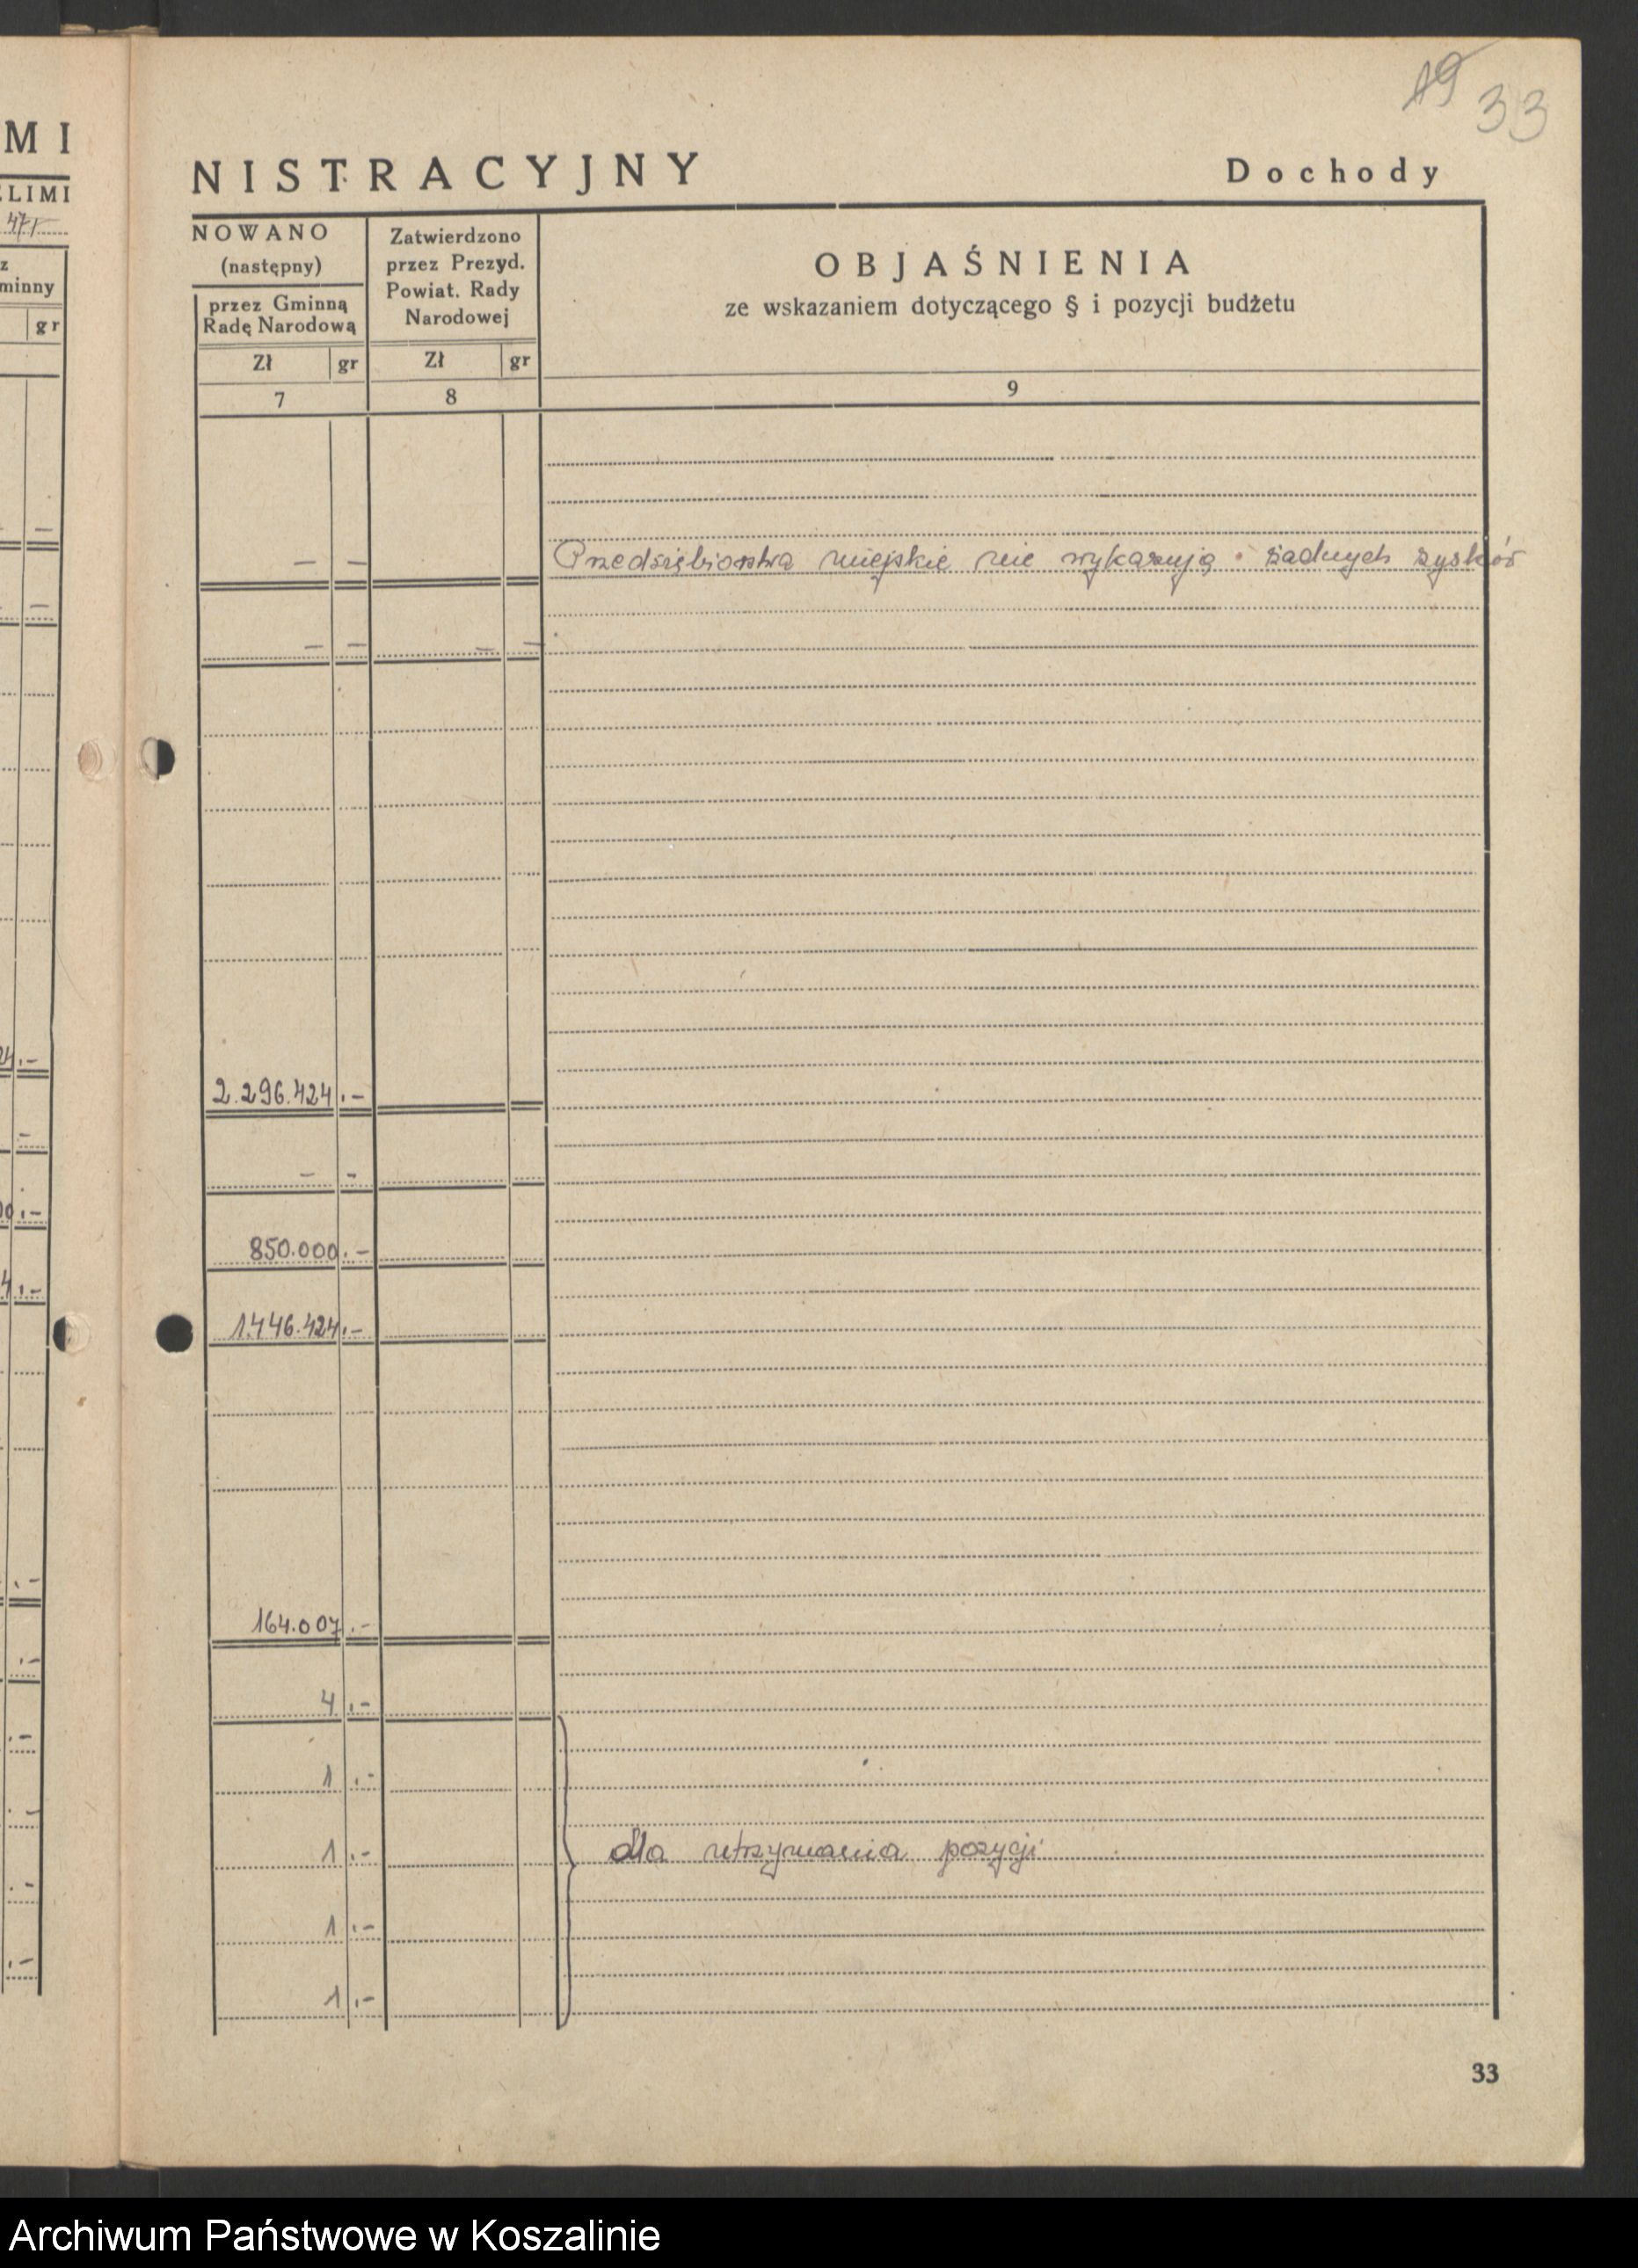 19 33
M I
NISTRACYJNY
Dochody
ELIMI
47 r
NOWANO
(następny)
przez Gminną
Radę Narodową
Zatwierdzono
przez Prezyd.
Powiat. Rady
Narodowej
OBJAŚNIENIA
ze wskazaniem dotyczącego § i pozycji budżetu
z
minny
gr
Zł gr Zł gr
7 8 9
— —
Przedsiębiorstwa miejskie nie wykazują żadnych zysków
— — — —
24 .-
2.296.424 .-
— -
00 .-
850.000 .-
4 .-
1.446.424 .-
164.007 .-
4 .-
1 .-
1 .- dla utrzymania pozycji
1 .-
1 .-
33
Archiwum Państwowe w Koszalinie